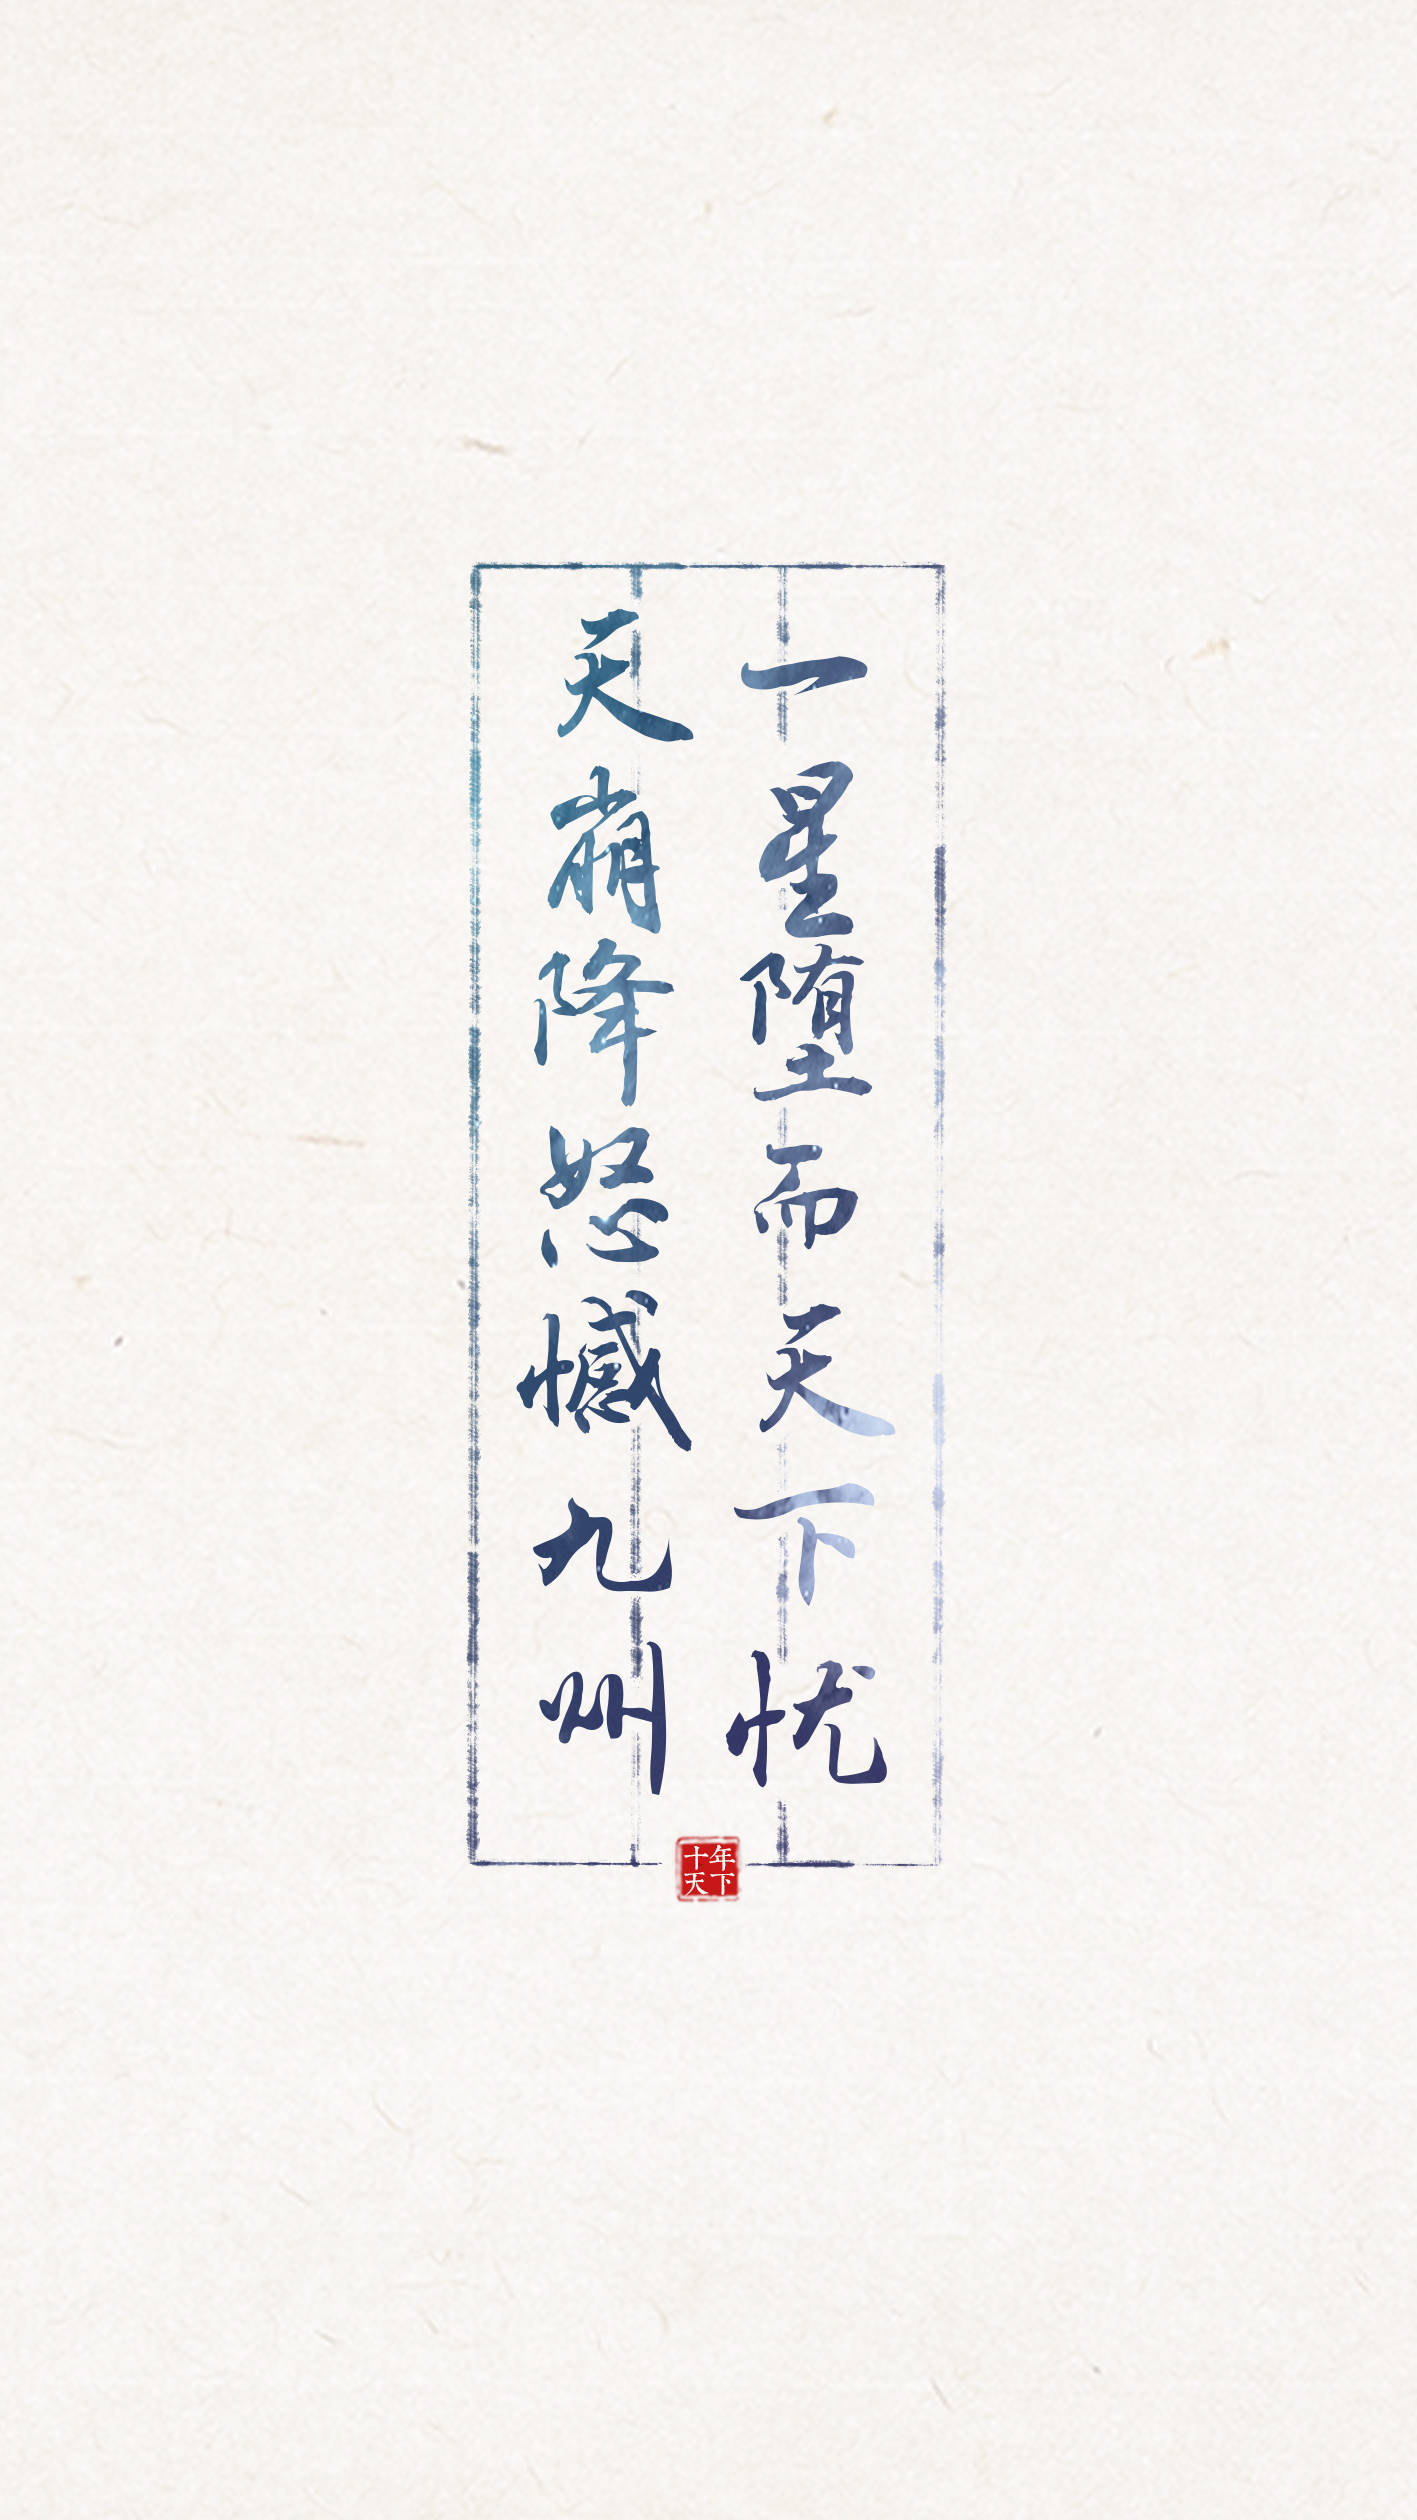 一星堕而天下忧
天崩降怒憾九州
十年
天下